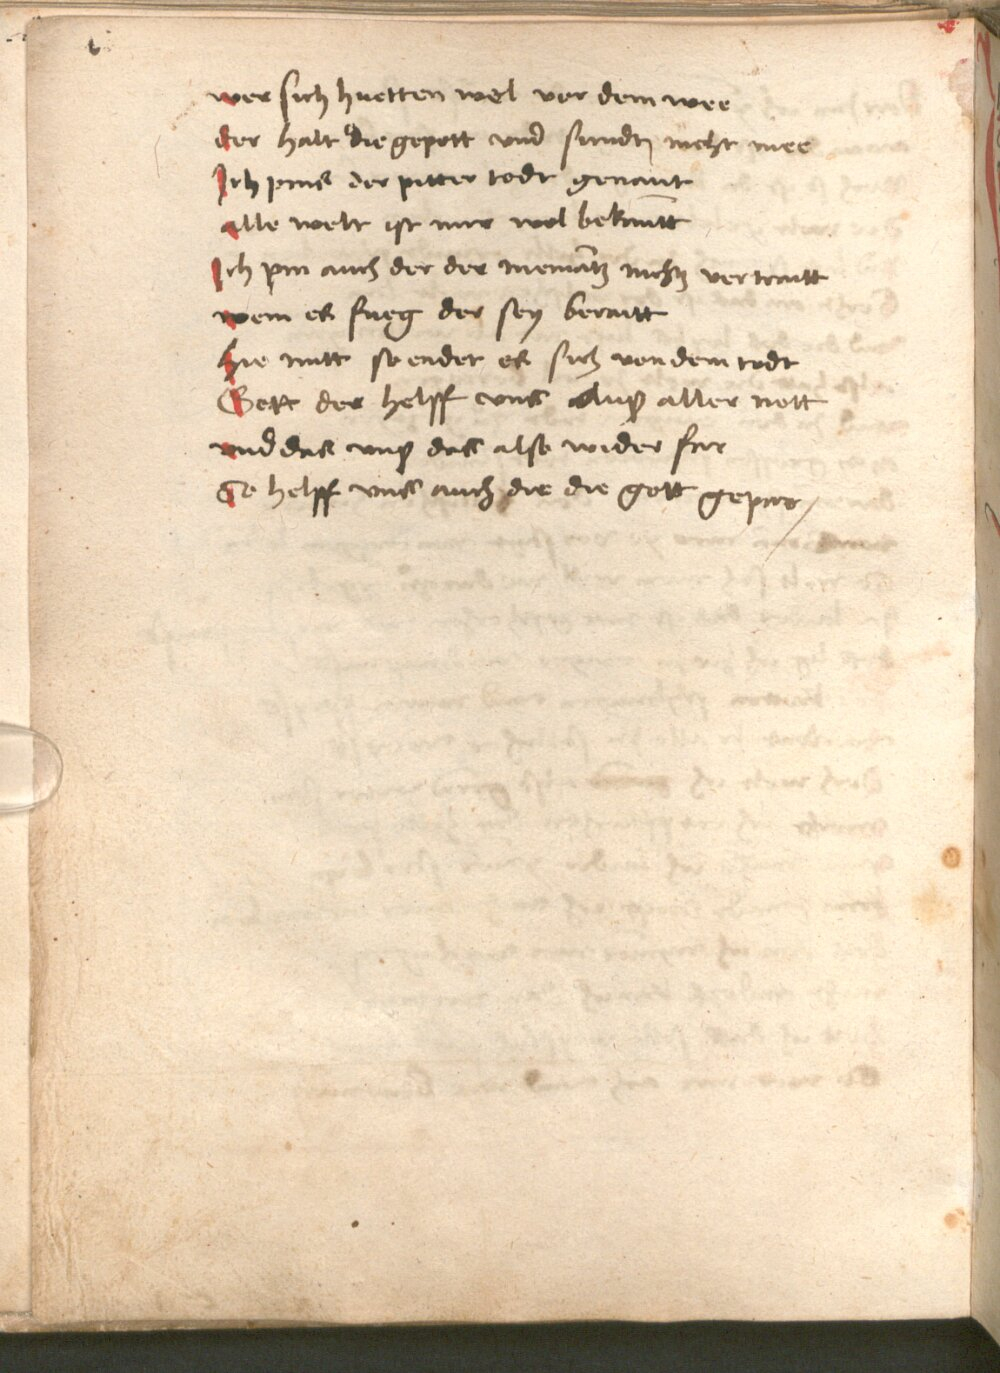 wer sich huetten wel vor dem wee
der halt die gepott vnd sundt nicht mee
Ich pins der pitter todt genant
alle welt ist mir wol bekantt
Ich pin auch der der niemātz nichtz vertraitt
wem es fueg der sey beraitt
hie mitt so endet es sich von dem todt
Gott der helff vns Auß aller nott
vnd das vnß das also wider far
So helff vns auch die die gott gepar